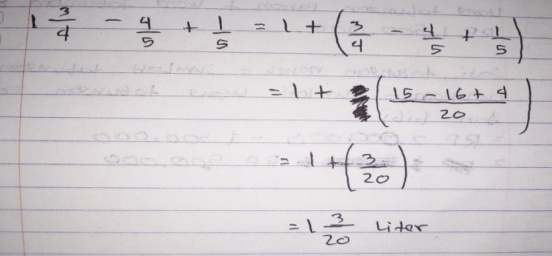 1 3/4 - 4/5 + 1/5 = 1 + (3/4 - 4/5 + 1/5)
= 1 + (15 - 16 + 4 / 20)
= 1 + (3/20)
= 1 3/20 Liter